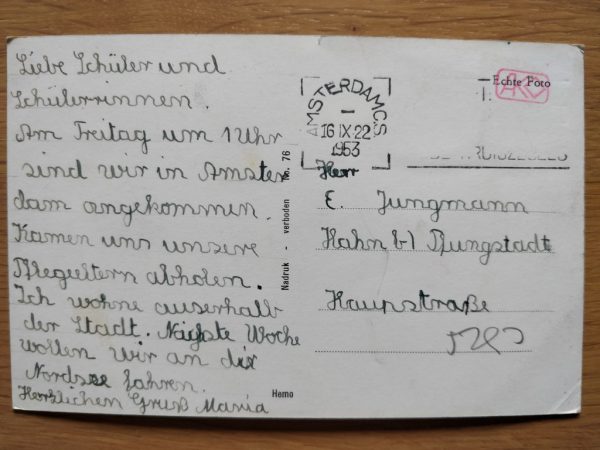 Liebe Schüler und
Schülerrinnen.
Am Freitag um 1 Uhr
sind wir in Amster
dam angekommen.
Kamen uns unsere
Pflegeltern abholen.
Ich wohne auserhalb
der Stadt. Nächste Woche
wollen wir an die
Nordsee fahren.
Herzlichen Gruß Maria
Nadruk - verboden No. 76
Hemo
AMSTERDAM C.S
16 IX 22
1953
Echte Foto
Herr
E. Jungmann
Hahn b/ Pfungstadt
Haupstraße